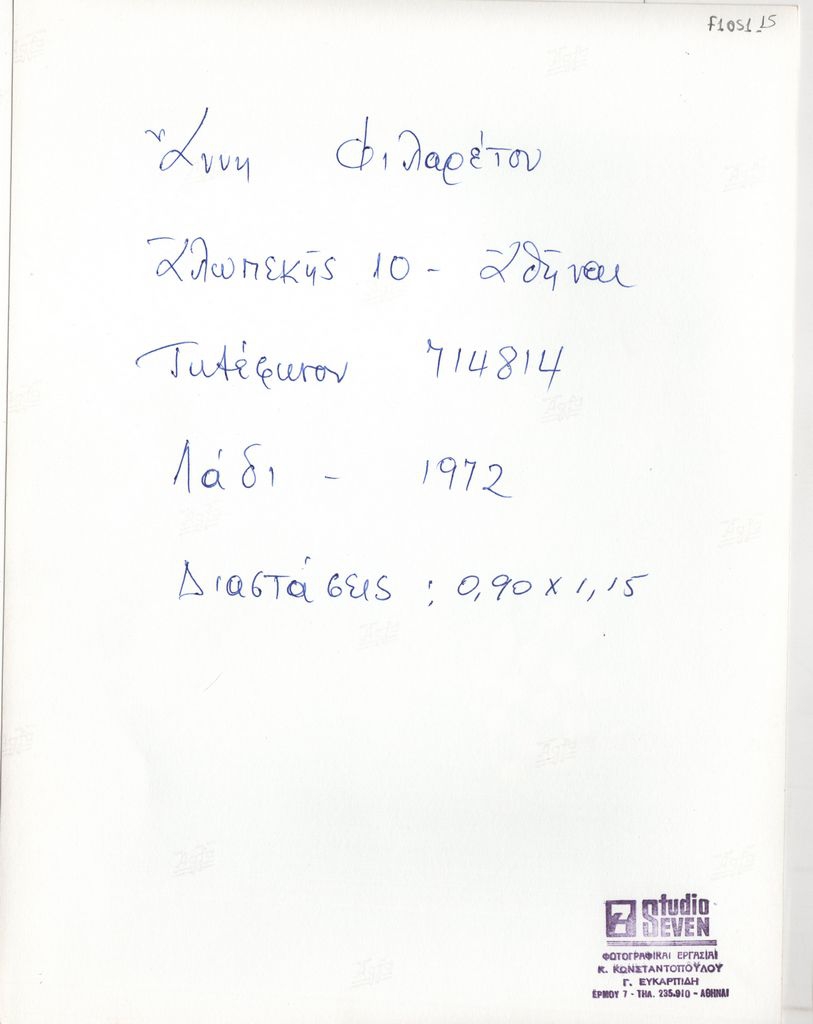 F1051_15
Ἄννη Φιλαρέτου
Ἀλωπεκῆς 10 - Ἀθῆναι
Τηλέφωνον 714814
Λάδι - 1972
Διαστάσεις : 0,90 x 1,15
7 Studio
SEVEN
ΦΩΤΟΓΡΑΦΙΚΑΙ ΕΡΓΑΣΙΑΙ
Κ. ΚΩΝΣΤΑΝΤΟΠΟΥΛΟΥ
Γ. ΕΥΚΑΡΠΙΔΗ
ΕΡΜΟΥ 7 - ΤΗΛ. 235.910 - ΑΘΗΝΑΙ